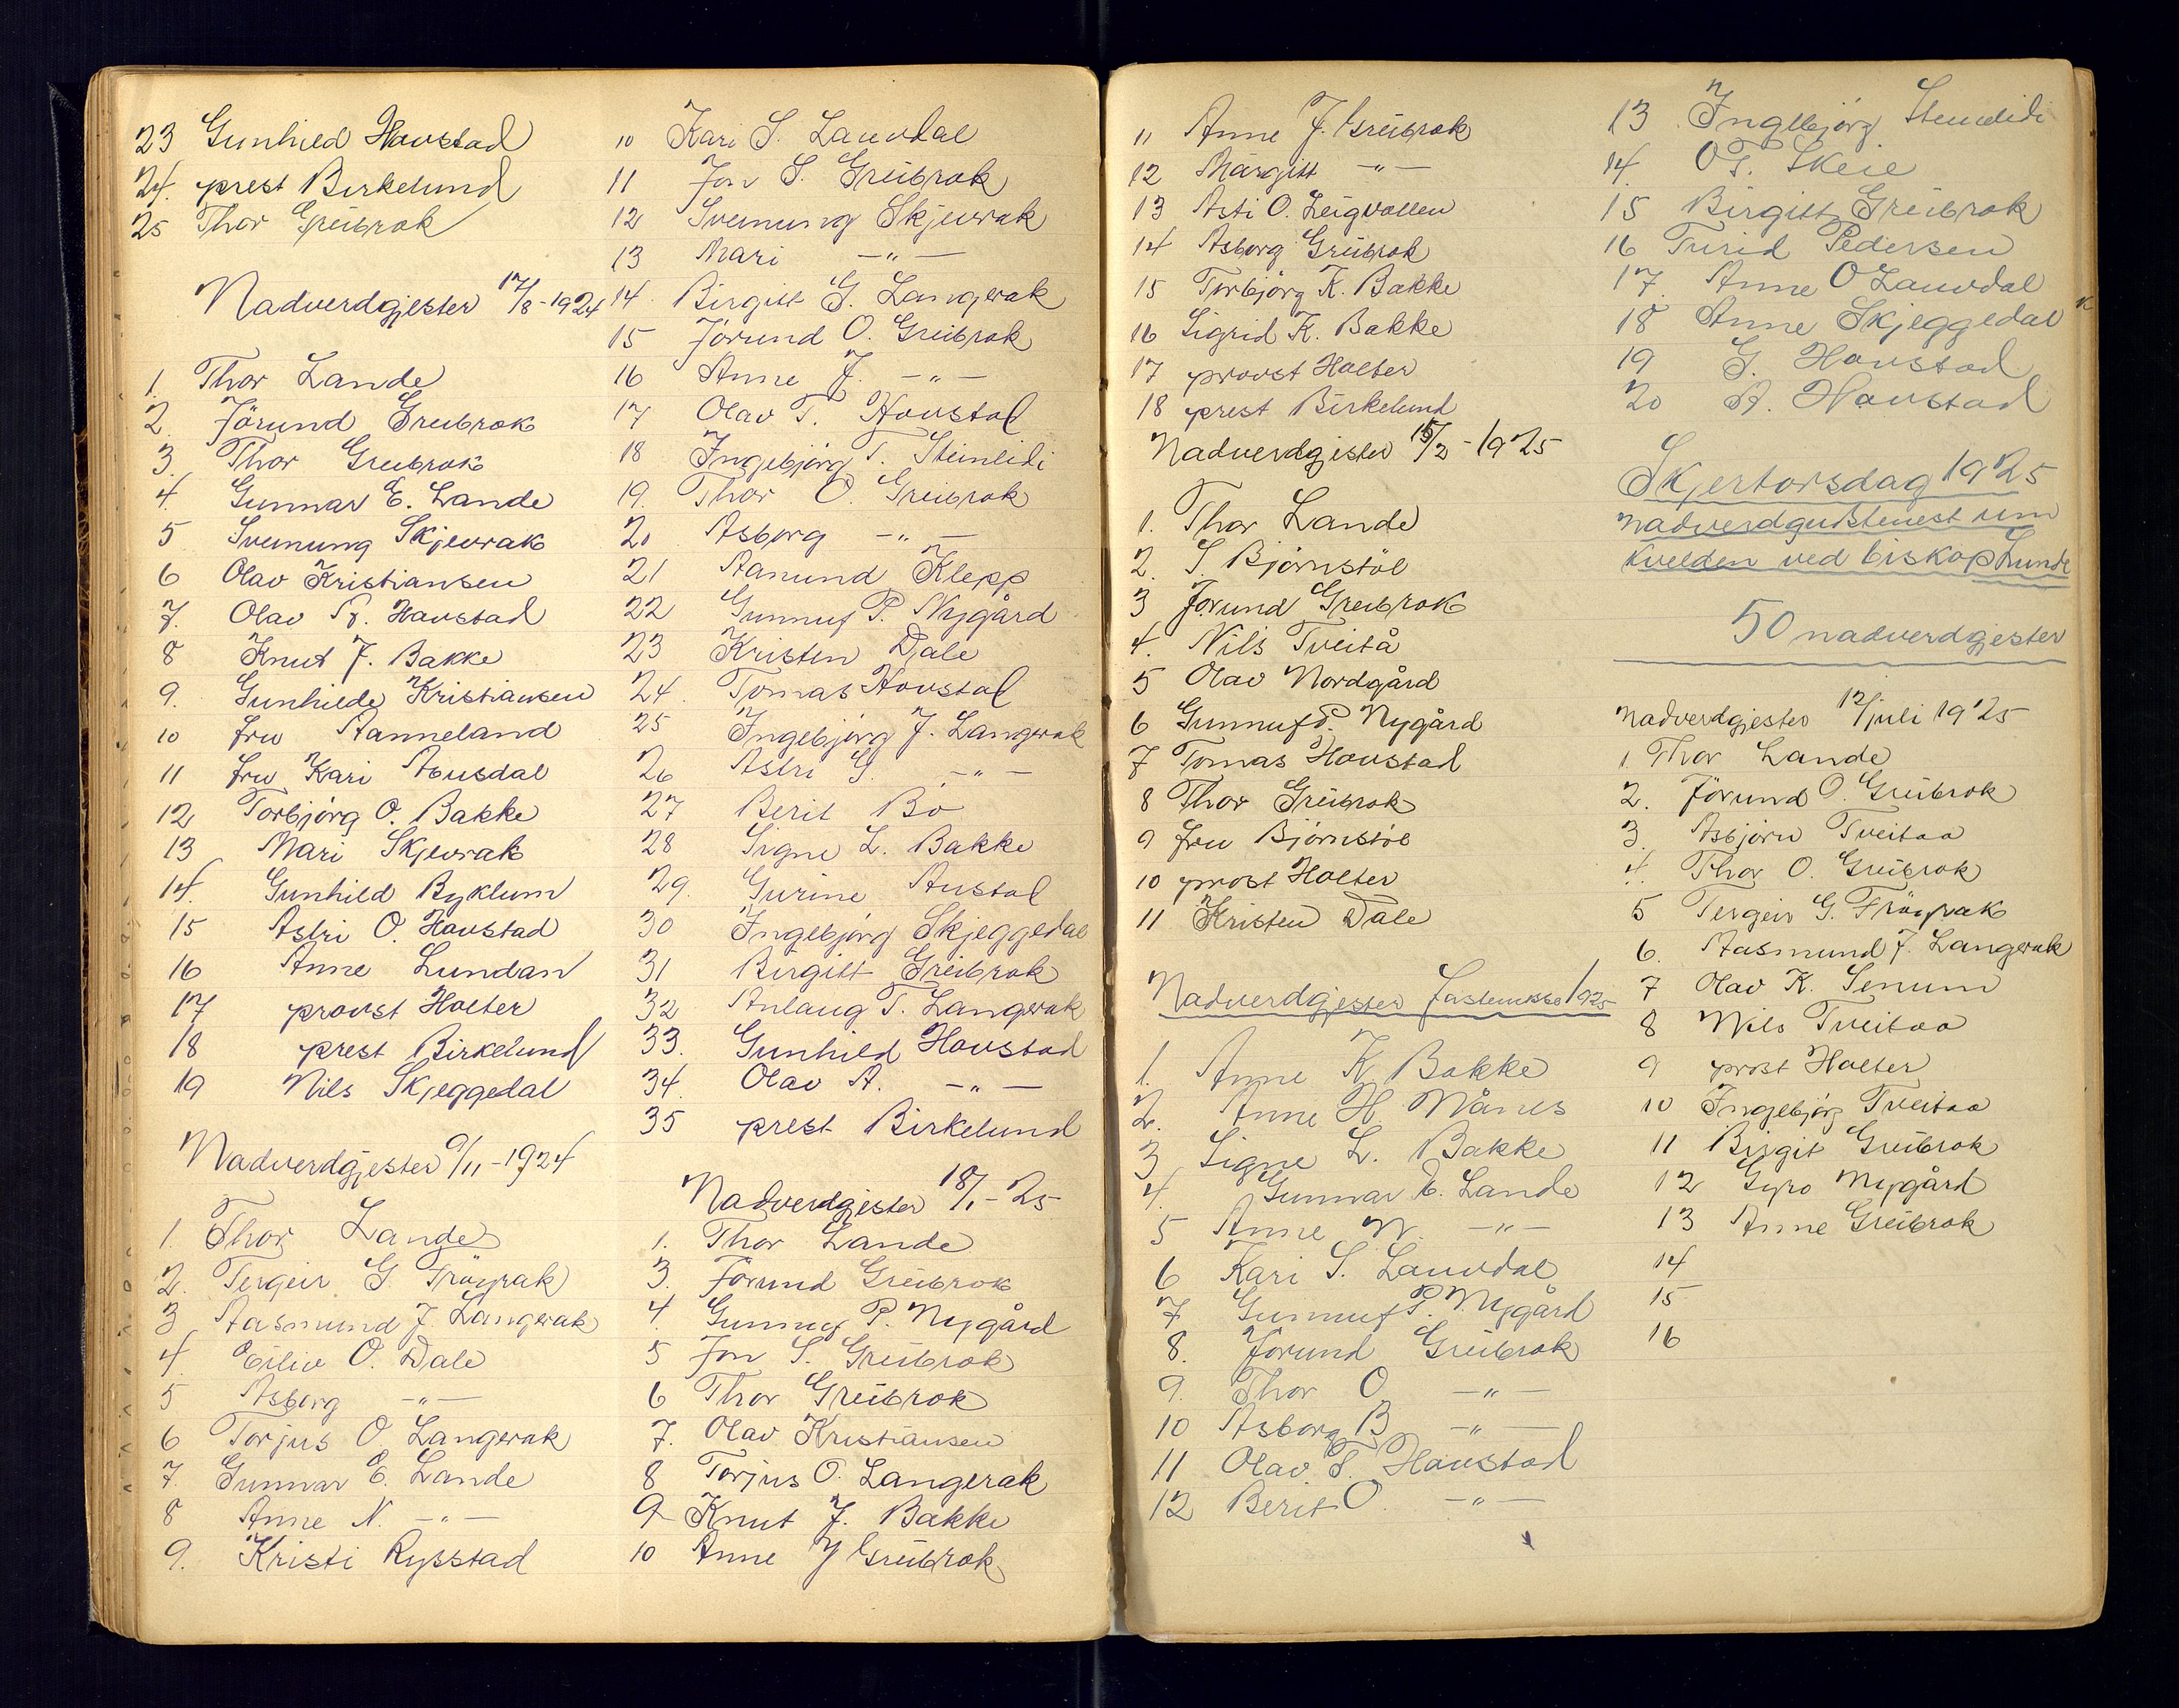 23 Gunhild Hovstad
24. prest Birkelund
25 Thor Greibrok
Nadverdgjester 17/8-1924
1. Thor Lande
2. Jörund Greibrok
3. Thor Greibrok
4. Gunnar E. Lande
5 Sveinung Skjevrak
6 Olav Kristiansen
7. Olav Hovstad
8 Knut J. Bakke
9. Gunhilde Kristiansen
10 fru Hanneland
11 fru Kari Ausdal
12 Torbjörg O. Bakke
13 Mari Skjevrak
14. Gunhild Ryklum
15 Astri O. Hovstad
16 Anne Lundan
17 provst Holter
18 prest Birkelund
19 Nils Skjeggedal
Nadverdgjester 9/11-1924
1. Thor Lande
2. Tergeir G. Fröyrak
3 Aasmund J. Langerak
4 Eiliv O. Dale
5 Asborg -"-
6 Torjus O. Langerak
7. Gunnar E. Lande
8 Anne N. -"-
9. Kristi Rysstad
10 Kari S. Lauvdal
11 Jon S. Greibrok
12 Sveinung Skjevrak
13 Mari -"-
14. Birgitt G. Langerak
15 Jörund O. Greibrok
16 Anne J. -"-
17 Olav T. Hovstad
18 Ingebjörg T. Steinlidi
19. Thor O. Greibrok
20 Asborg -"-
21 Aanund Klepp
22 Gunnuf P. Nygård
23 Kristen Dale
24. Tomas Hovstad
25 Ingebjörg J. Langerak
26 Astri G. -"-
27 Berit Bö
28 Signe L. Bakke
29. Gurine Austad
30 Ingebjörg Skjeggedal
31 Birgitt Greibrok
32 Anlaug T. Langerak
33. Gunhild Hovstad
34. Olav A. -"-
35 prest Birkelund
Nadverdgjester 18/1-25
1. Thor Lande
3. Jörund Greibrok
4. Gunnuf P. Nygård
5 Jon S. Greibrok
6 Thor Greibrok
7. Olav Kristiansen
8 Torjus O. Langerak
9 Knut J. Bakke
10 Anne J Greibrok
11 Anne J. Greibrok
12 Margitt -"-
13 Asti O. Leigvollen
14 Asborg Greibrok
15 Torbjörg K. Bakke
16 Sigrid K. Bakke
17 provst Holter
18 prest Birkelund
Nadverdgjester 15/2-1925
1. Thor Lande
2. S. Björnstöl
3 Jorund Greibrok
4. Nils Tveitå
5 Olav Nordgård
6 Gunnuf P. Nygård
7 Tomas Hovstad
8 Thor Greibrok
9 fru Björnstöl
10 prost Holter
11 Kristen Dale
Nadverdgjester fastemesse 1925
1. Anne K Bakke
2. Anne H Månes
3 Signe L. Bakke
4. Gunnar E. Lande
5 Anne N. -"-
6 Kari S. Lauvdal
7 Gunnuf P. Nygård
8. Jorund Greibrok
9. Thor O. -"-
10 Asborg B -"-
11 Olav T. Hovstad
12 Berit O. -"-
13 Ingebjörg Steinlidi
14. O T. Skeie
15 Birgitt Greibrok
16 Turid Pedersen
17. Anne O Lauvdal
18 Anne Skjeggedal
19 G. Hovstad
20 A. Hovstad
Skjertorsdag 1925
nadverdgudstenest um
kvelden ved biskop Lunde
50 nadverdgjester
nadverdgjester 12/juli 1925
1 Thor Lande
2. Jörund O. Greibrok
3. Asbjörn Tveitaa
4. Thor O. Greibrok
5 Tergeir G. Fröyrak
6. Aasmund J. Langerak
7 Olav K. Senum
8 Nils Tveitaa
9 prost Holter
10 Ingebjörg Tveitaa
11 Birgit Greibrok
12 Gyro Nygård
13 Anne Greibrok
14
15
16